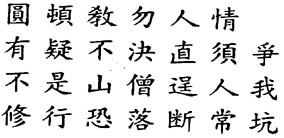 圓頓教勿人情
有疑不決直須爭
不是山僧逞人我
修行恐落断常坑